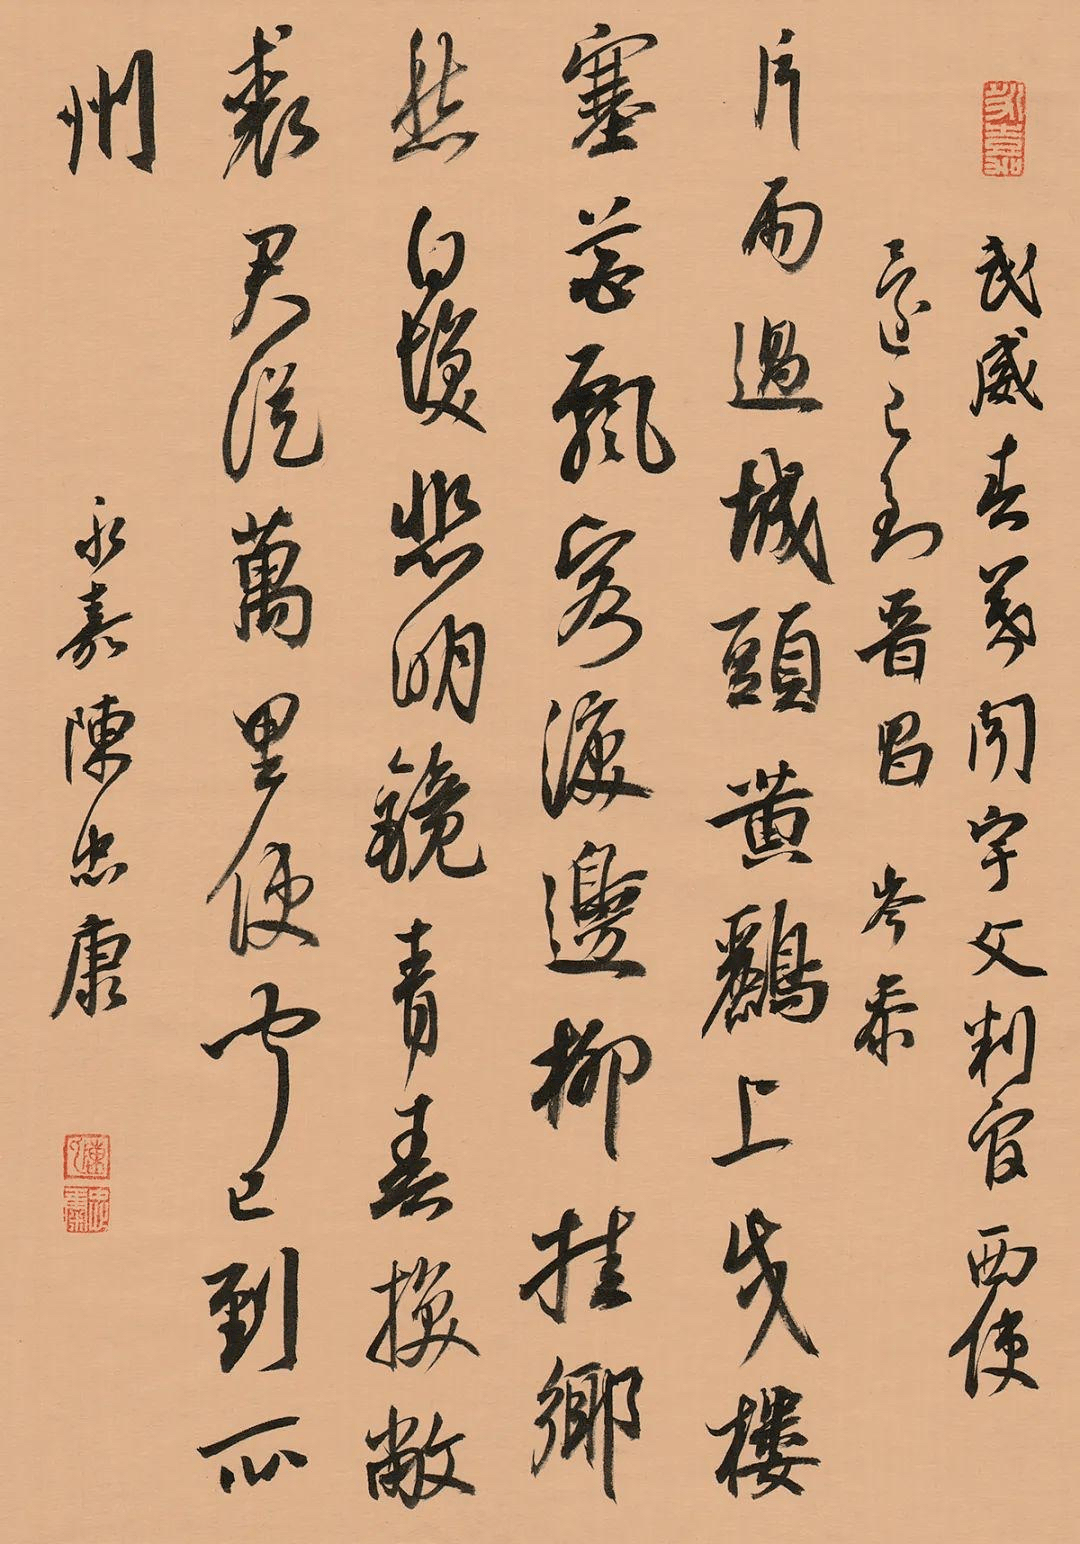 永嘉
武威春暮聞宇文判官西使
還已到晋昌 岑參
片雨過城頭黄鸝上戍樓
塞花飄客淚邊柳挂鄉
愁白髮悲明鏡青春換敝
裘君從萬里使聞已到瓜
州
永嘉陳忠康